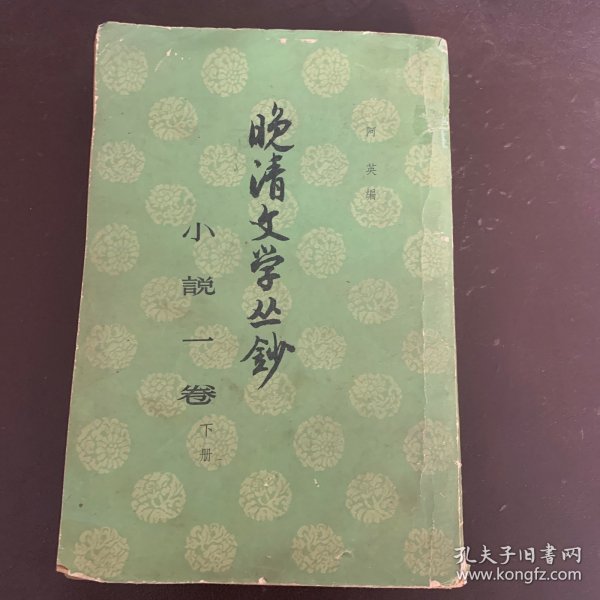 阿英编
晚清文学丛鈔
小說一卷
下册
孔夫子旧書网
www.kongfz.com